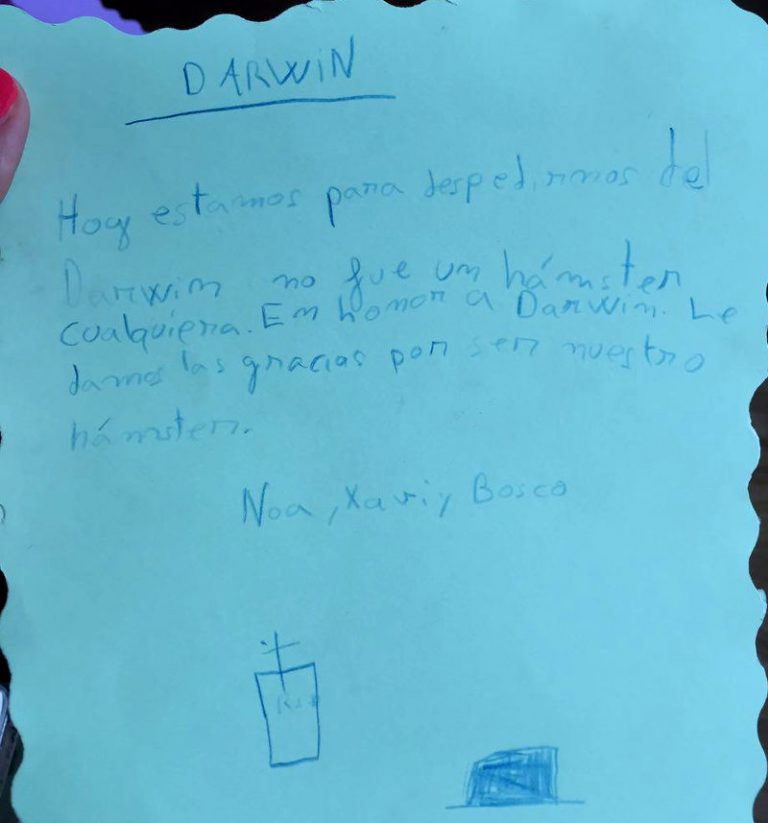 DARWiN
Hoy estamos para despedirnos del
Darwin no fue un hámster
cualquiera. En honor a Darwin. Le
damos las gracias por ser nuestro
hámster.
Noa, Xavi y Bosco